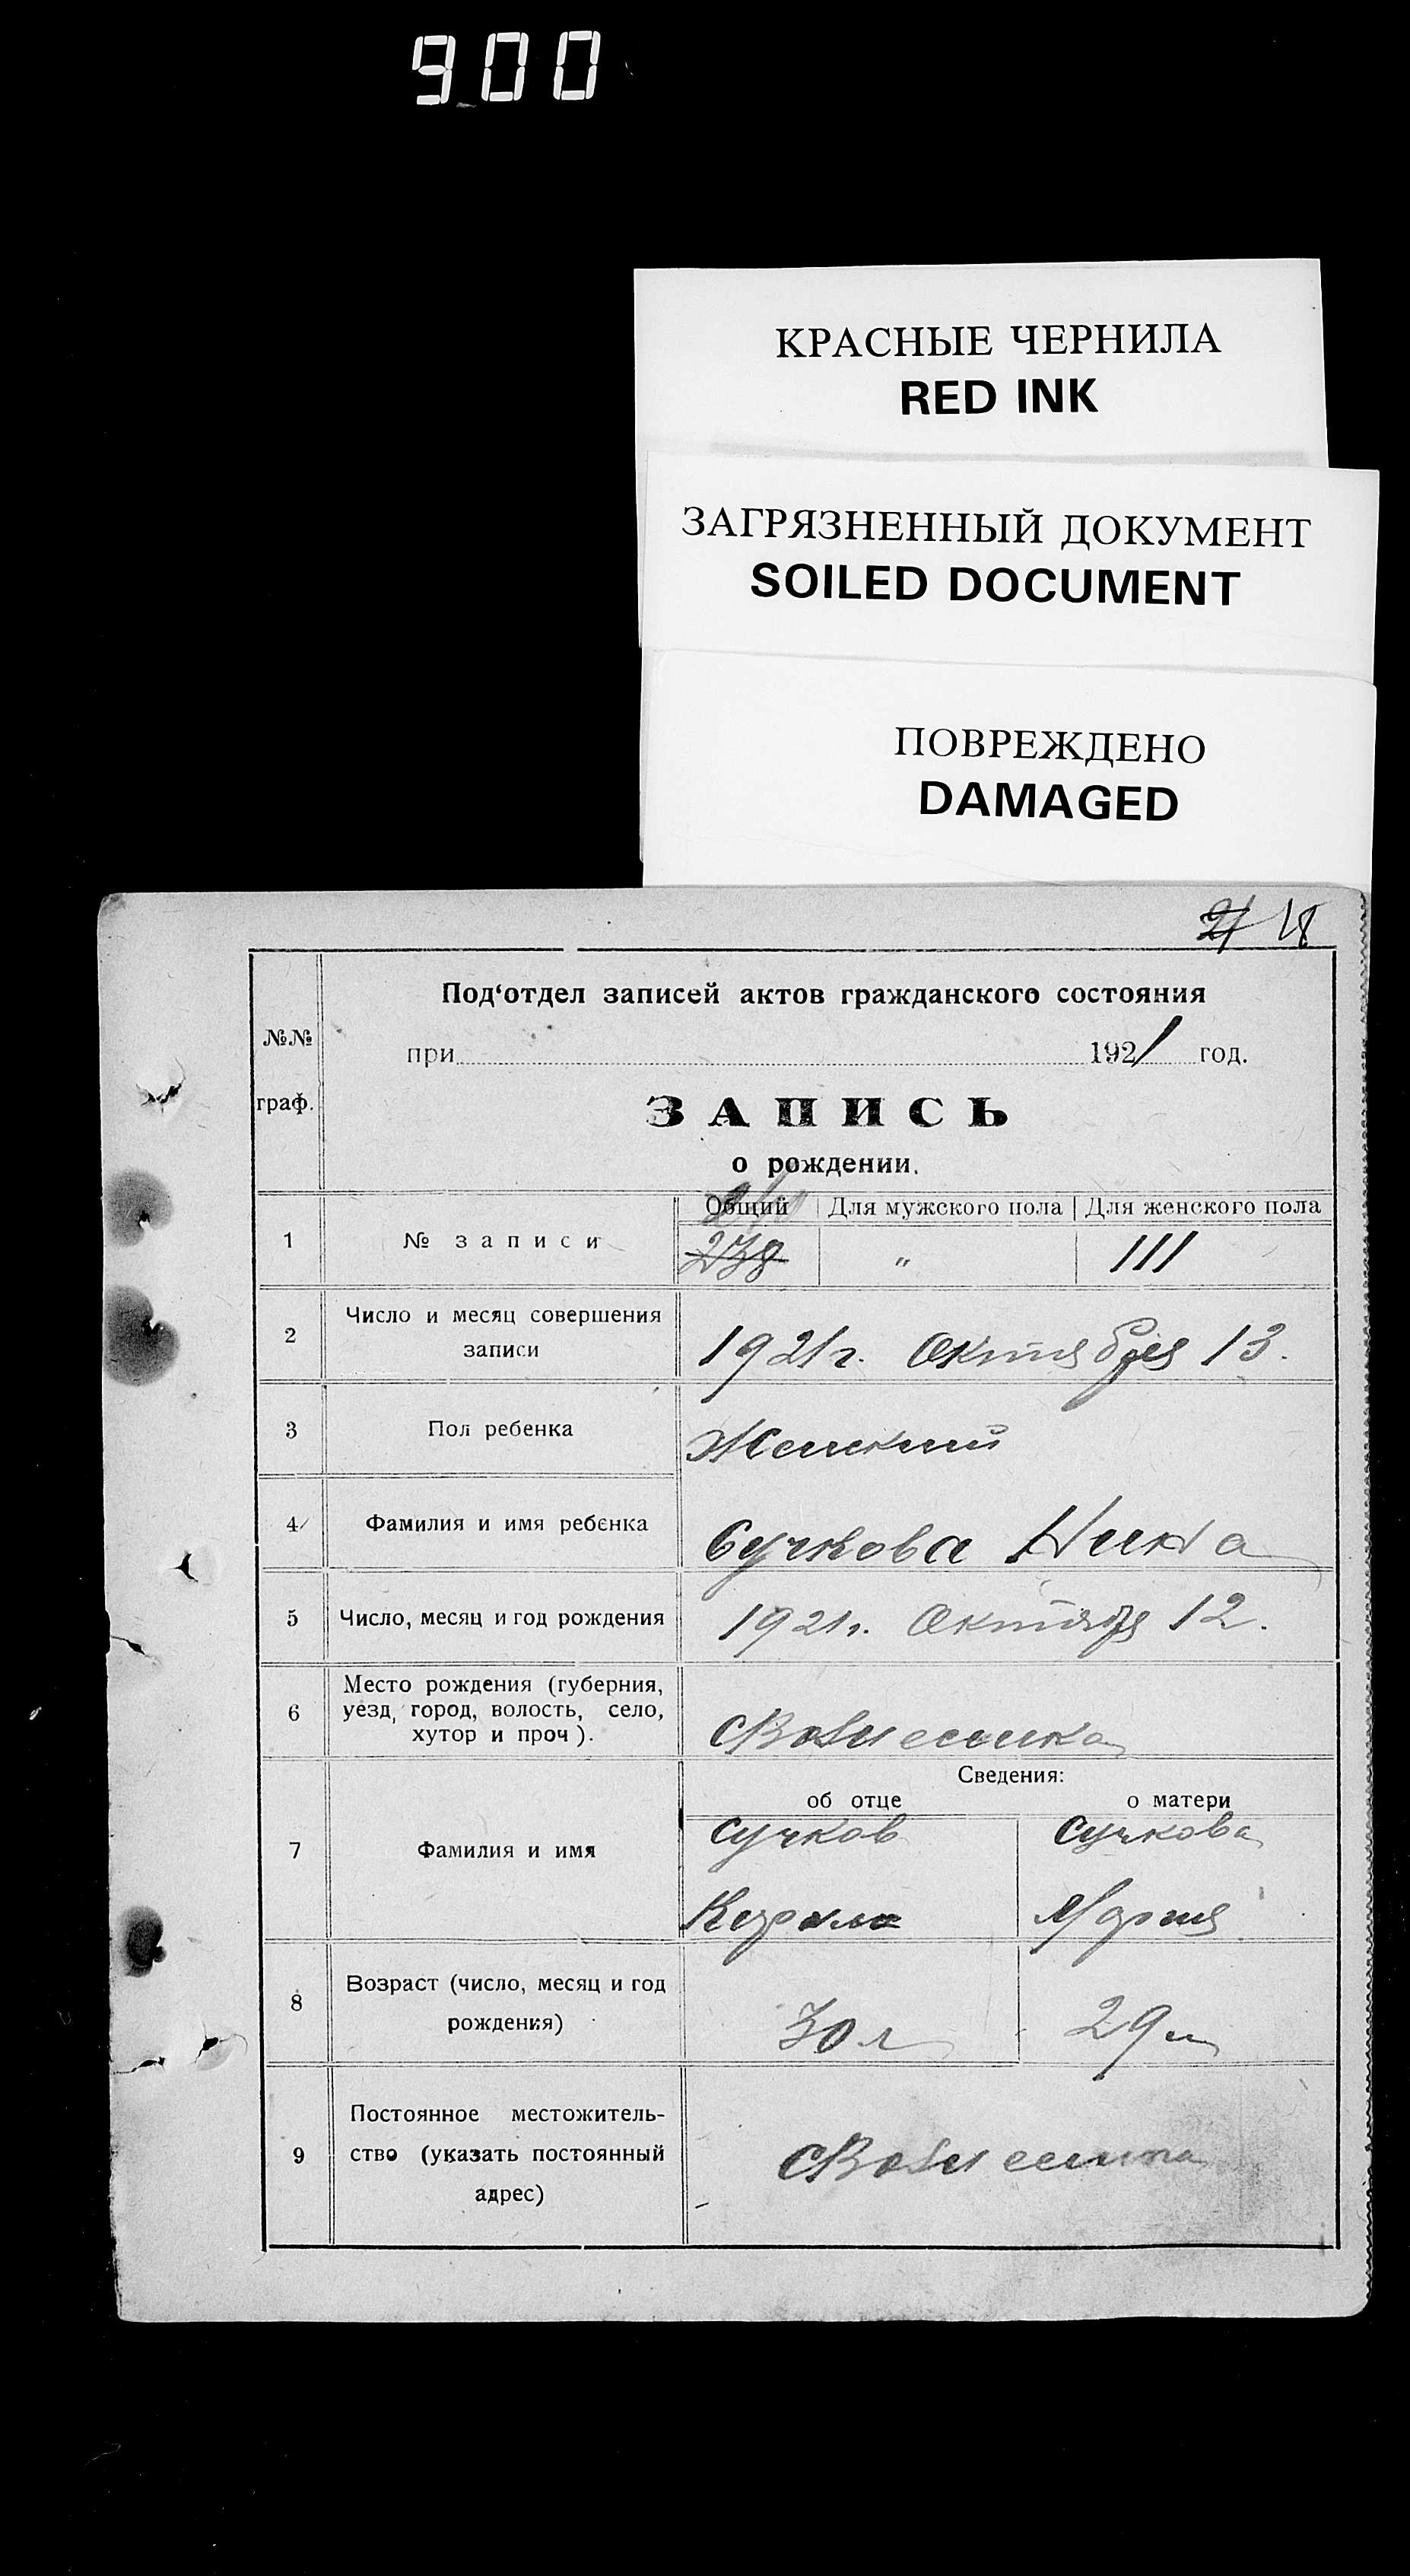 900
КРАСНЫЕ ЧЕРНИЛА
RED INK
ЗАГРЯЗНЕННЫЙ ДОКУМЕНТ
SOILED DOCUMENT
ПОВРЕЖДЕНО
DAMAGED
21 18
Под‘отдел записей актов гражданского состояния
№№
граф.
при 1921 год.
ЗАПИСЬ
о рождении.
Общий Для мужского пола Для женского пола
1 № записи 238 " 111
2 Число и месяц совершения
записи
1921г. Октября 13.
3 Пол ребенка
Женский
4 Фамилия и имя ребенка
Сучкова Нина
5 Число, месяц и год рождения 1921г. Октября 12.
6 Место рождения (губерния,
уезд, город, волость, село,
хутор и проч).
Сведения:
об отце о матери
7 Фамилия и имя
Сучков Сучкова
Мария
8 Возраст (число, месяц и год
рождения)
30 л 29 л
9 Постоянное местожитель-
ство (указать постоянный
адрес)